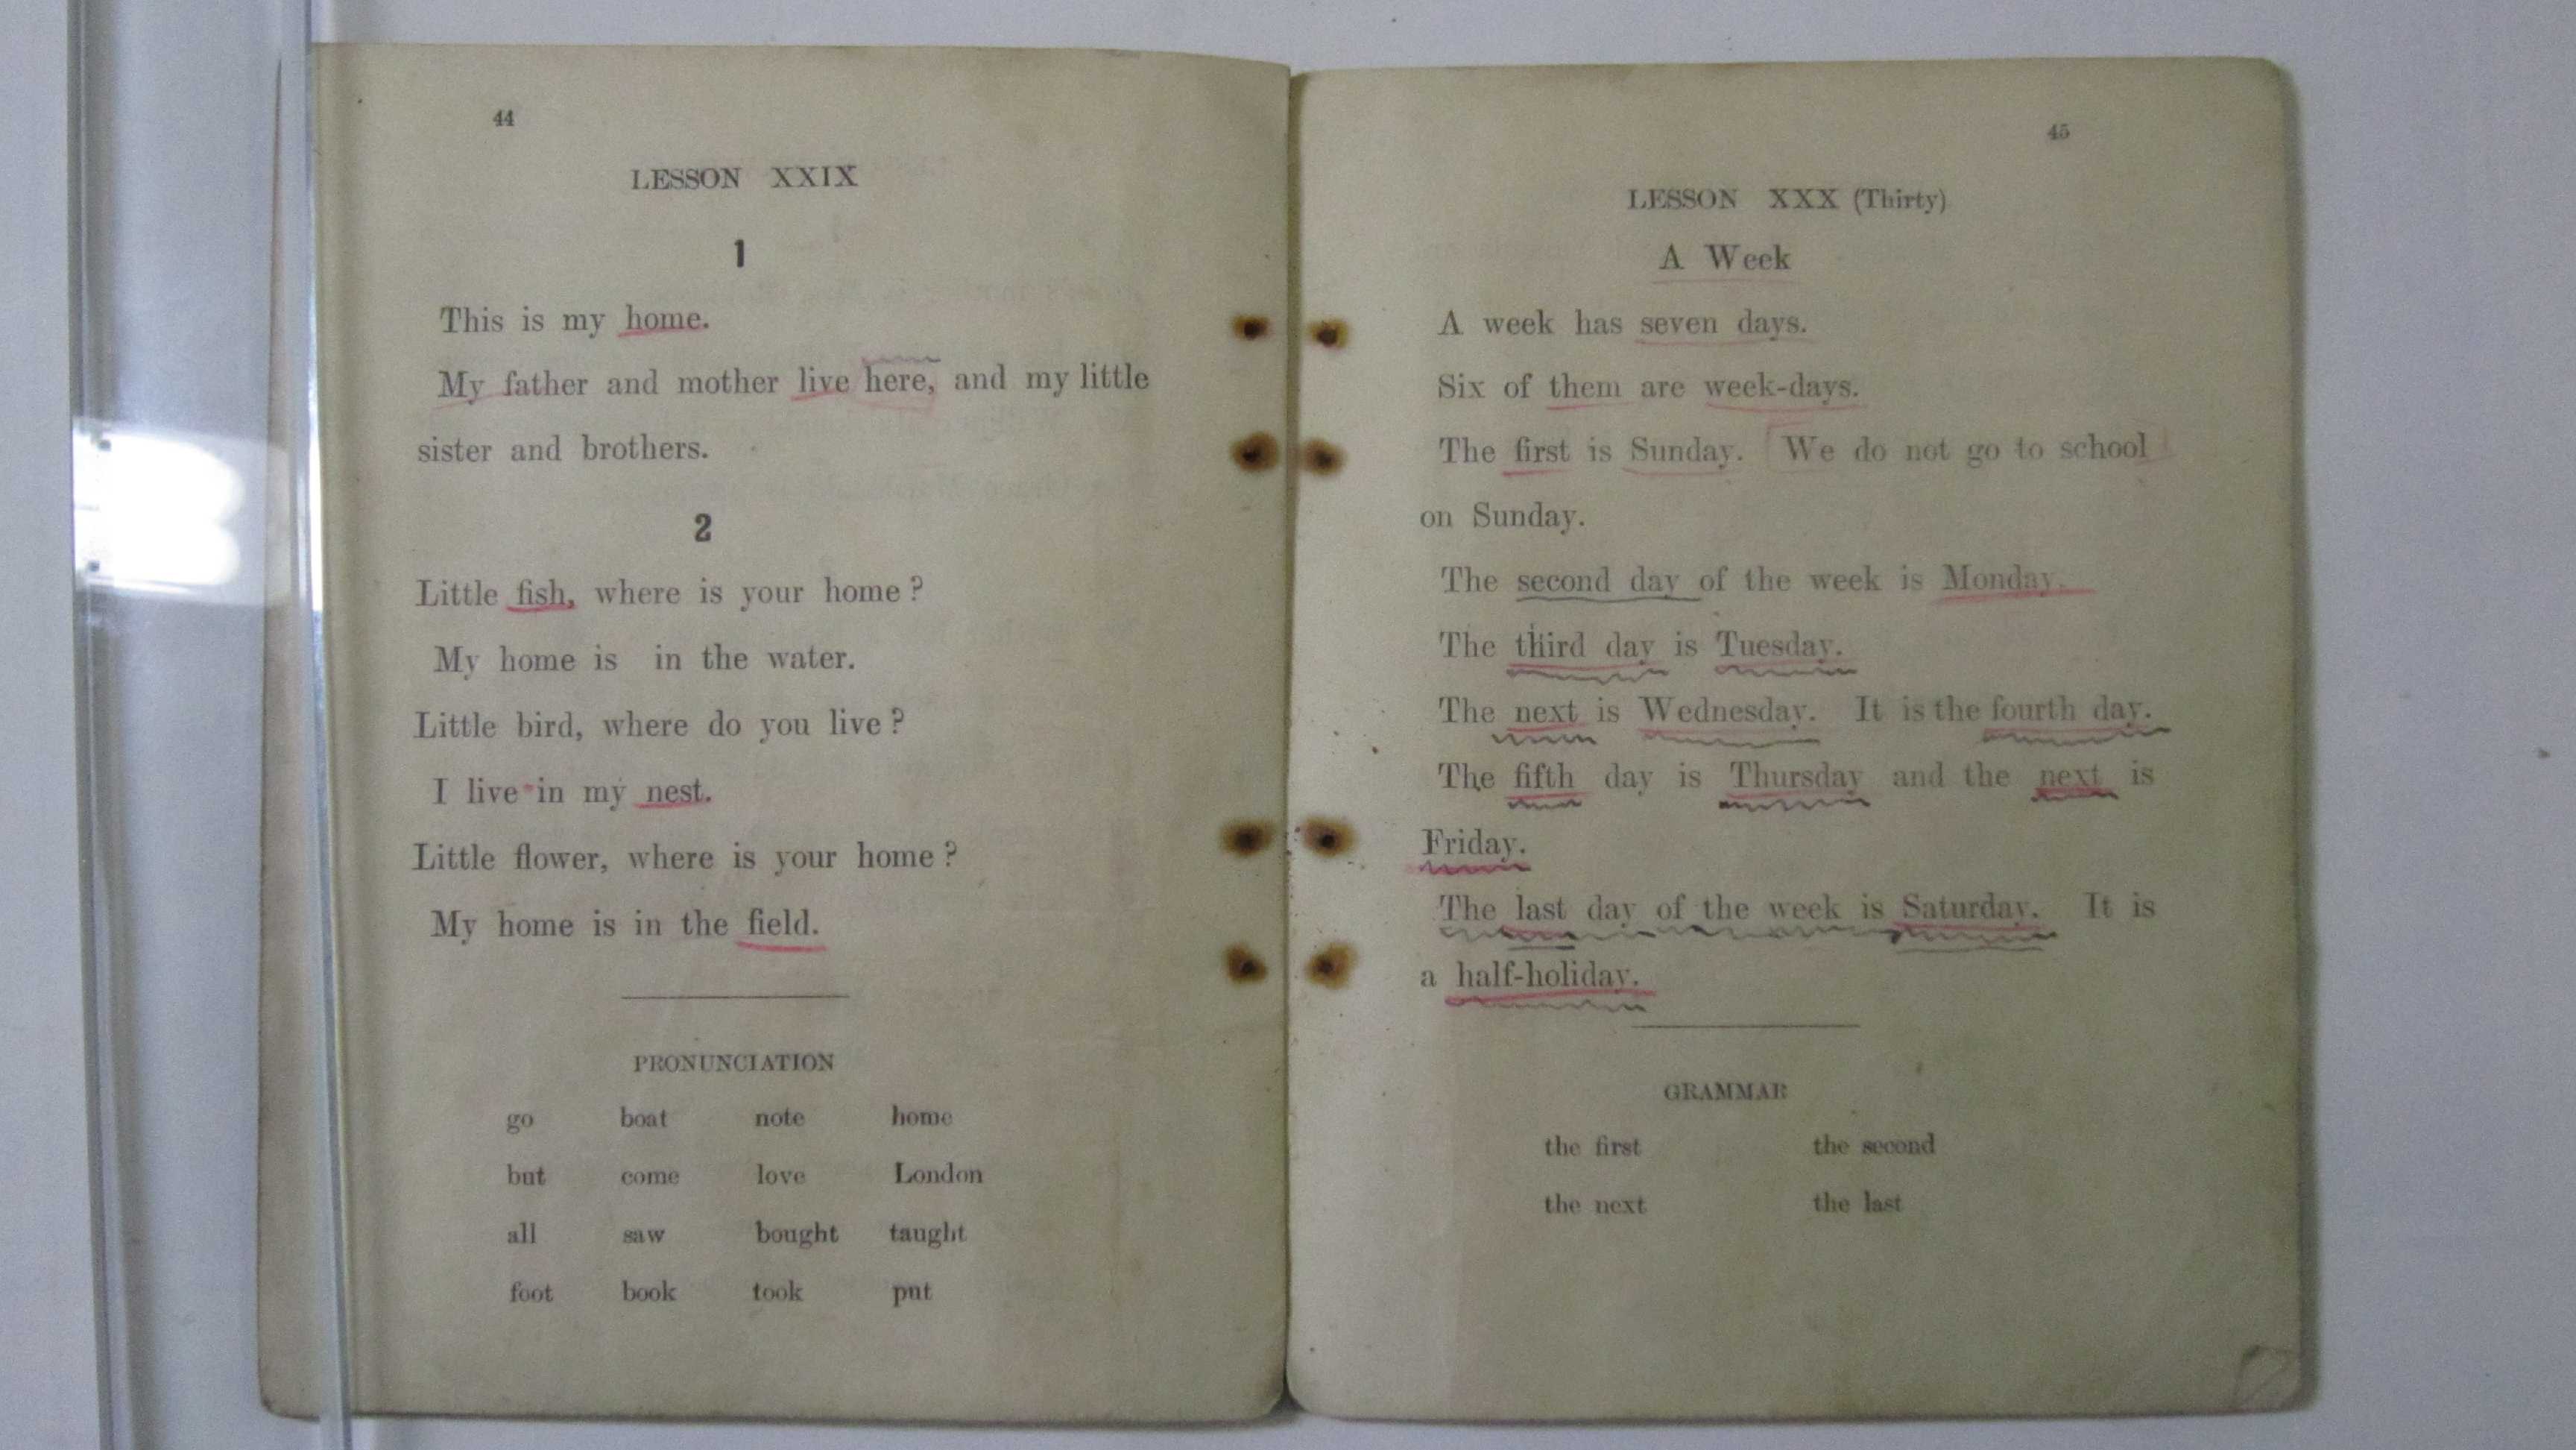 44
LESSON XXIX
1
This is my home.
My father and mother live here, and my little
sister and brothers.
2
Little fish, where is your home ?
My home is in the water.
Little bird, where do you live ?
I live in my nest.
Little flower, where is your home ?
My home is in the field.
PRONUNCIATION
go boat note home
but come love London
all saw bought taught
foot book took put
45
LESSON XXX (Thirty)
A Week
A week has seven days.
Six of them are week-days.
The first is Sunday. We do not go to school
on Sunday.
The second day of the week is Monday.
The third day is Tuesday.
The next is Wednesday. It is the fourth day.
The fifth day is Thursday and the next is
Friday.
The last day of the week is Saturday. It is
a half-holiday.
GRAMMAR
the first the second
the next the last